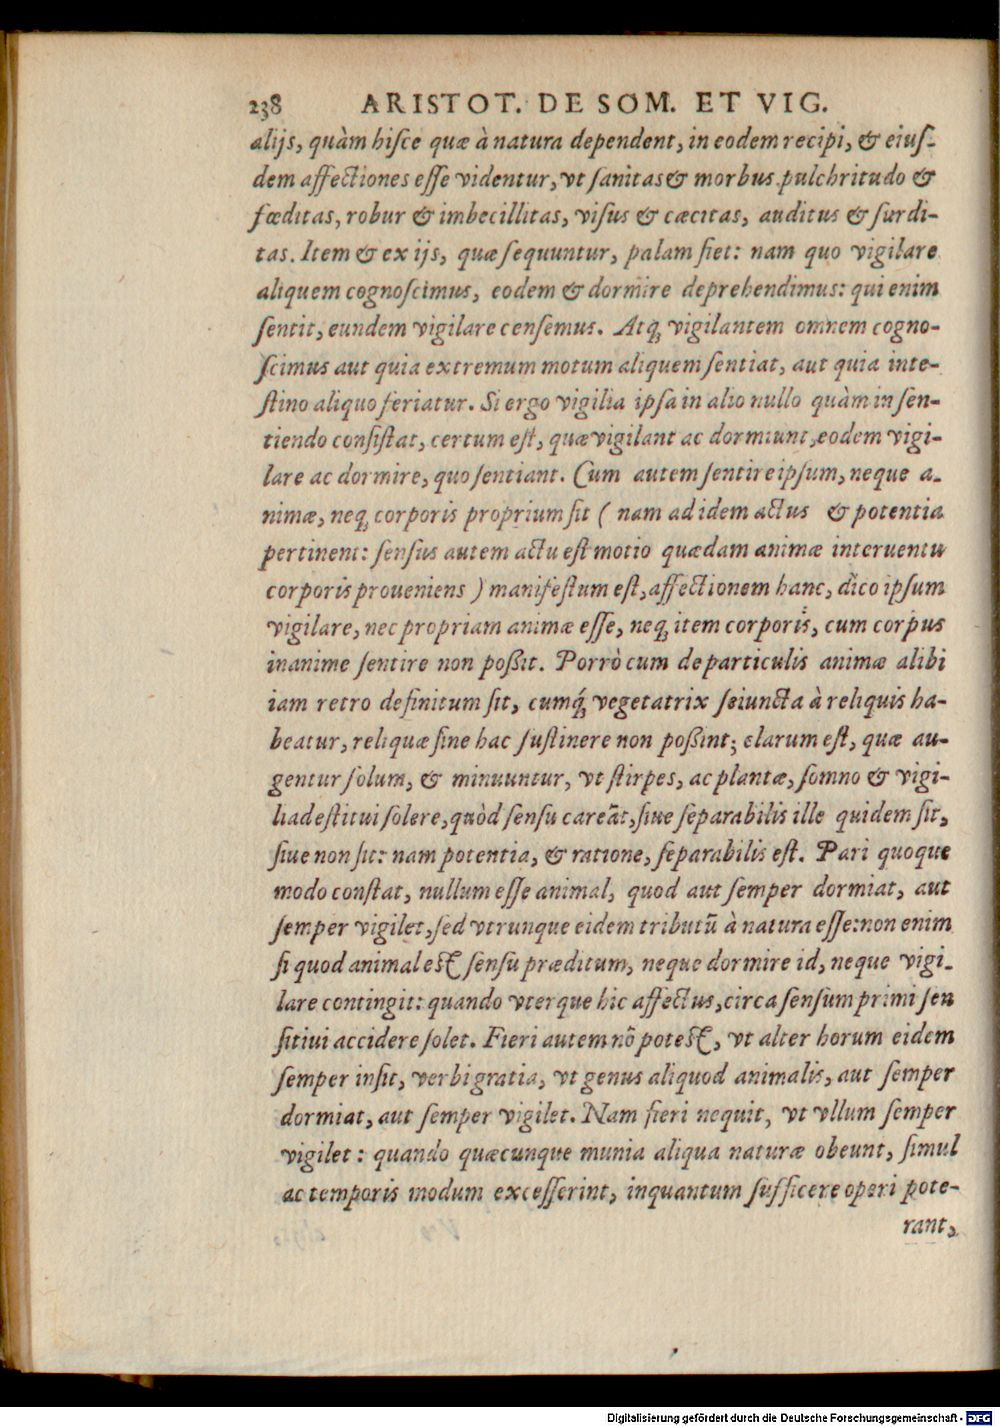 238 ARISTOT. DE SOM. ET VIG.
alijs, quàm hisce quæ à natura dependent, in eodem recipi, & eius-
dem affectiones esse videntur, vt sanitas & morbus, pulchritudo &
fœditas, robur & imbecillitas, visus & cæcitas, auditus & surdi-
tas. Item & ex ijs, quæ sequuntur, palam fiet: nam quo vigilare
aliquem cognoscimus, eodem & dormire deprehendimus: qui enim
sentit, eundem vigilare censemus. Atq; vigilantem omnem cogno-
scimus aut quia extremum motum aliquem sentiat, aut quia inte-
stino aliquo feriatur. Si ergo vigilia ipsa in alio nullo quàm in sen-
tiendo consistat, certum est, quæ vigilant ac dormiunt, eodem vigi-
lare ac dormire, quo sentiant. Cum autem sentire ipsum, neque a-
nimæ, neq; corporis proprium sit ( nam ad idem actus & potentia
pertinent: sensus autem actu est motio quædam animæ interuentu
corporis proueniens ) manifestum est, affectionem hanc, dico ipsum
vigilare, nec propriam animæ esse, neq; item corporis, cum corpus
inanime sentire non poßit. Porrò cum de particulis animæ alibi
iam retro definitum sit, cumq́; vegetatrix seiuncta à reliquis ha-
beatur, reliquæ sine hac sustinere non poßint; clarum est, quæ au-
gentur solum, & minuuntur, vt stirpes, ac plantæ, somno & vigi-
lia destitui solere, quòd sensu careāt, siue separabilis ille quidem sit,
siue non sit: nam potentia, & ratione, separabilis est. Pari quoque
modo constat, nullum esse animal, quod aut semper dormiat, aut
semper vigilet, sed vtrunque eidem tributū à natura esse: non enim
si quod animal est sensu præditum, neque dormire id, neque vigi-
lare contingit: quando vterque hic affectus, circa sensum primi sen
sitiui accidere solet. Fieri autem nō potest, vt alter horum eidem
semper insit, verbi gratia, vt genus aliquod animalis, aut semper
dormiat, aut semper vigilet. Nam fieri nequit, vt vllum semper
vigilet: quando quæcunque munia aliqua naturæ obeunt, simul
ac temporis modum excesserint, inquantum sufficere operi pote-
rant,
Digitalisierung gefördert durch die Deutsche Forschungsgemeinschaft - DFG